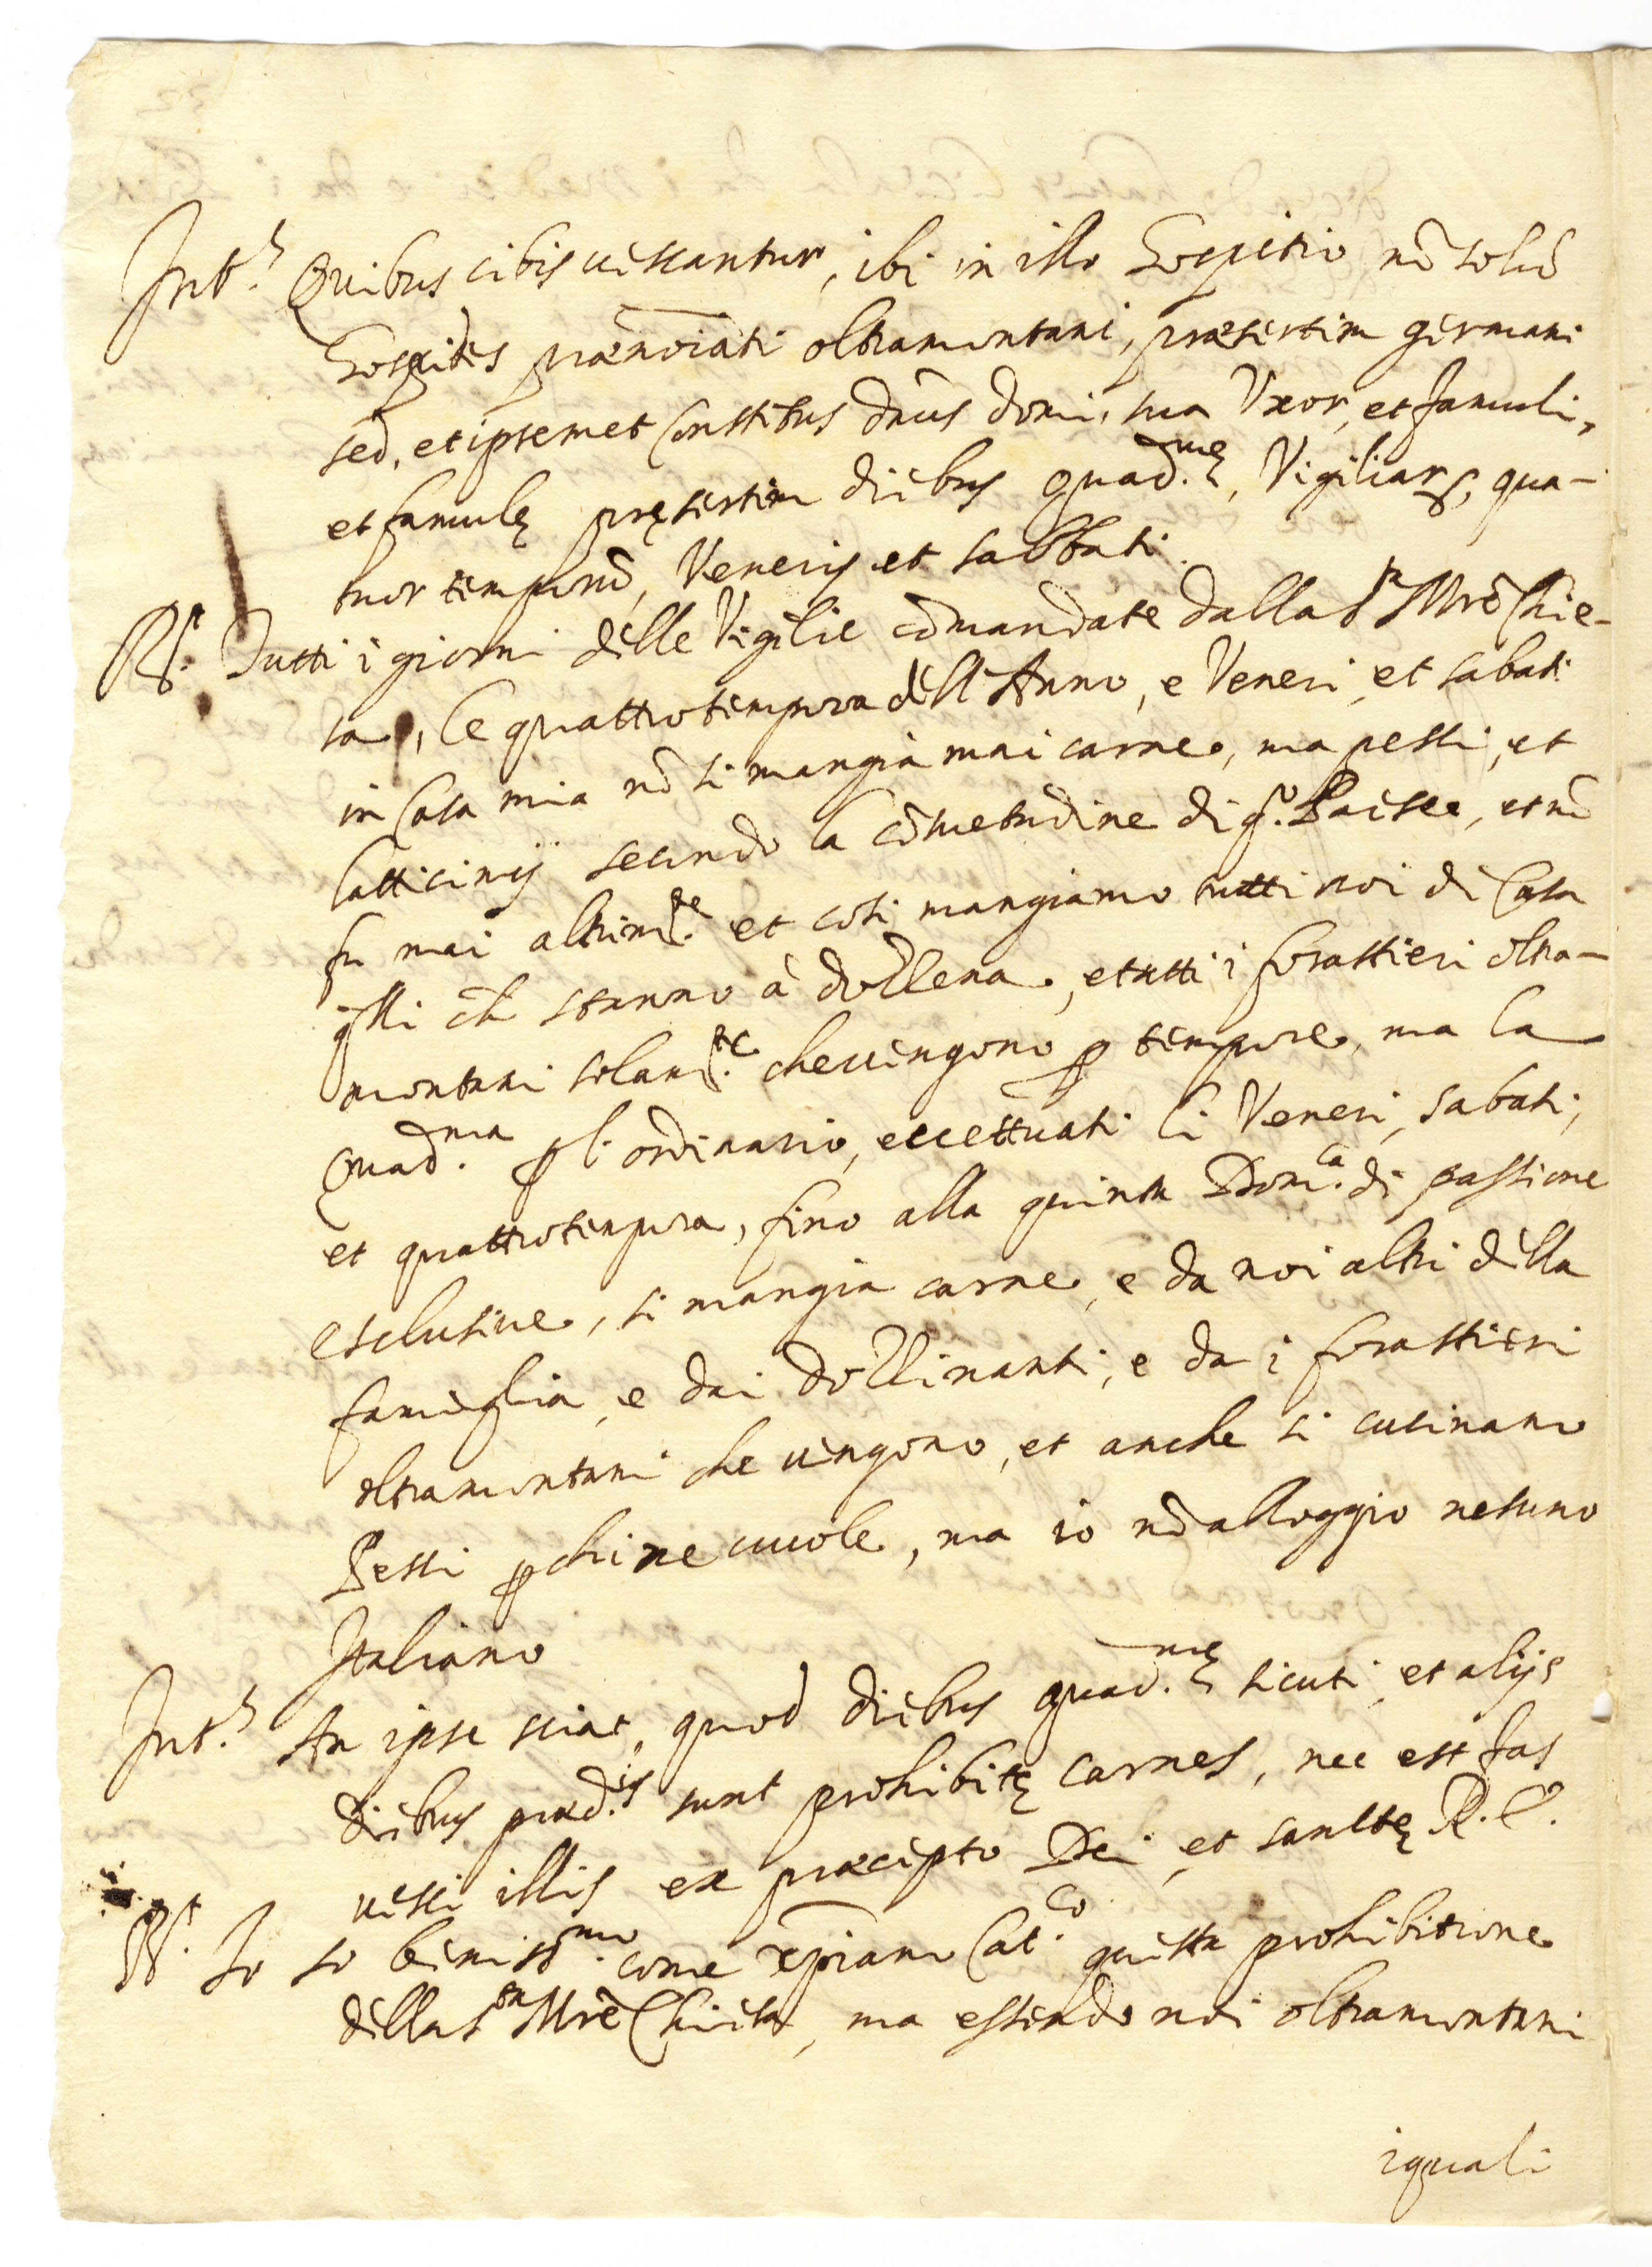 Int.s Quibus cibis uescantur, ibi in illo Hospitio nō solū
Hospites prænoīati oltramontani, præsertim germani
sed, et ipsemet Constitus Dn̄us domi, sua Vxor, et famuli,
et famulę pręsertim diebus quad.mę, Vigiliarꝝ, qua-
tuor temporū, Veneris et sabbati.
Rs.t Tutti i giorni delle Vigilie cōmandate dalla S.ta Mrē Chie-
sa, le quattrotempora dell'Anno, e Veneri, et sabati
in Casa mia nō si mangia mai carne, ma pesci, et
latticinij secondo la cōsuetudine di q.o Paese, et nō
fu mai altrim.te et così mangiamo tutti noi di Casa
q̄lli ch̄ stanno à dozzena, e tutti i forastieri oltra-
montani solam.te che uengono ꝑ tempore, ma la
Quad.ma ꝑ l'ordinario, eccettuati li Veneri, sabati,
et quattrotempora, fino alla quinta Dom.ca di passione
esclusiue, si mangia carne, e da noi altri della
famiglia, e dai dozzinanti, e da i forastieri
oltramontani che uengono, et anche si cucinano
Pesci ꝑ chi ne uuole, ma io nō alloggio nesuno
Italiano
Int.s An ipse sciat, quod diebus quad.mę sicuti, et alijs
diebus præd.is sunt prohibitę carnes, nec est fas
uesci illis ex præcepto Dei, et sanctę R. E.
Rs.t Io so beniss.mo come xp̄iano Cat.co questa prohibitione
della S.ta Mrē Chiesa, ma essendo noi oltramontani
iquali